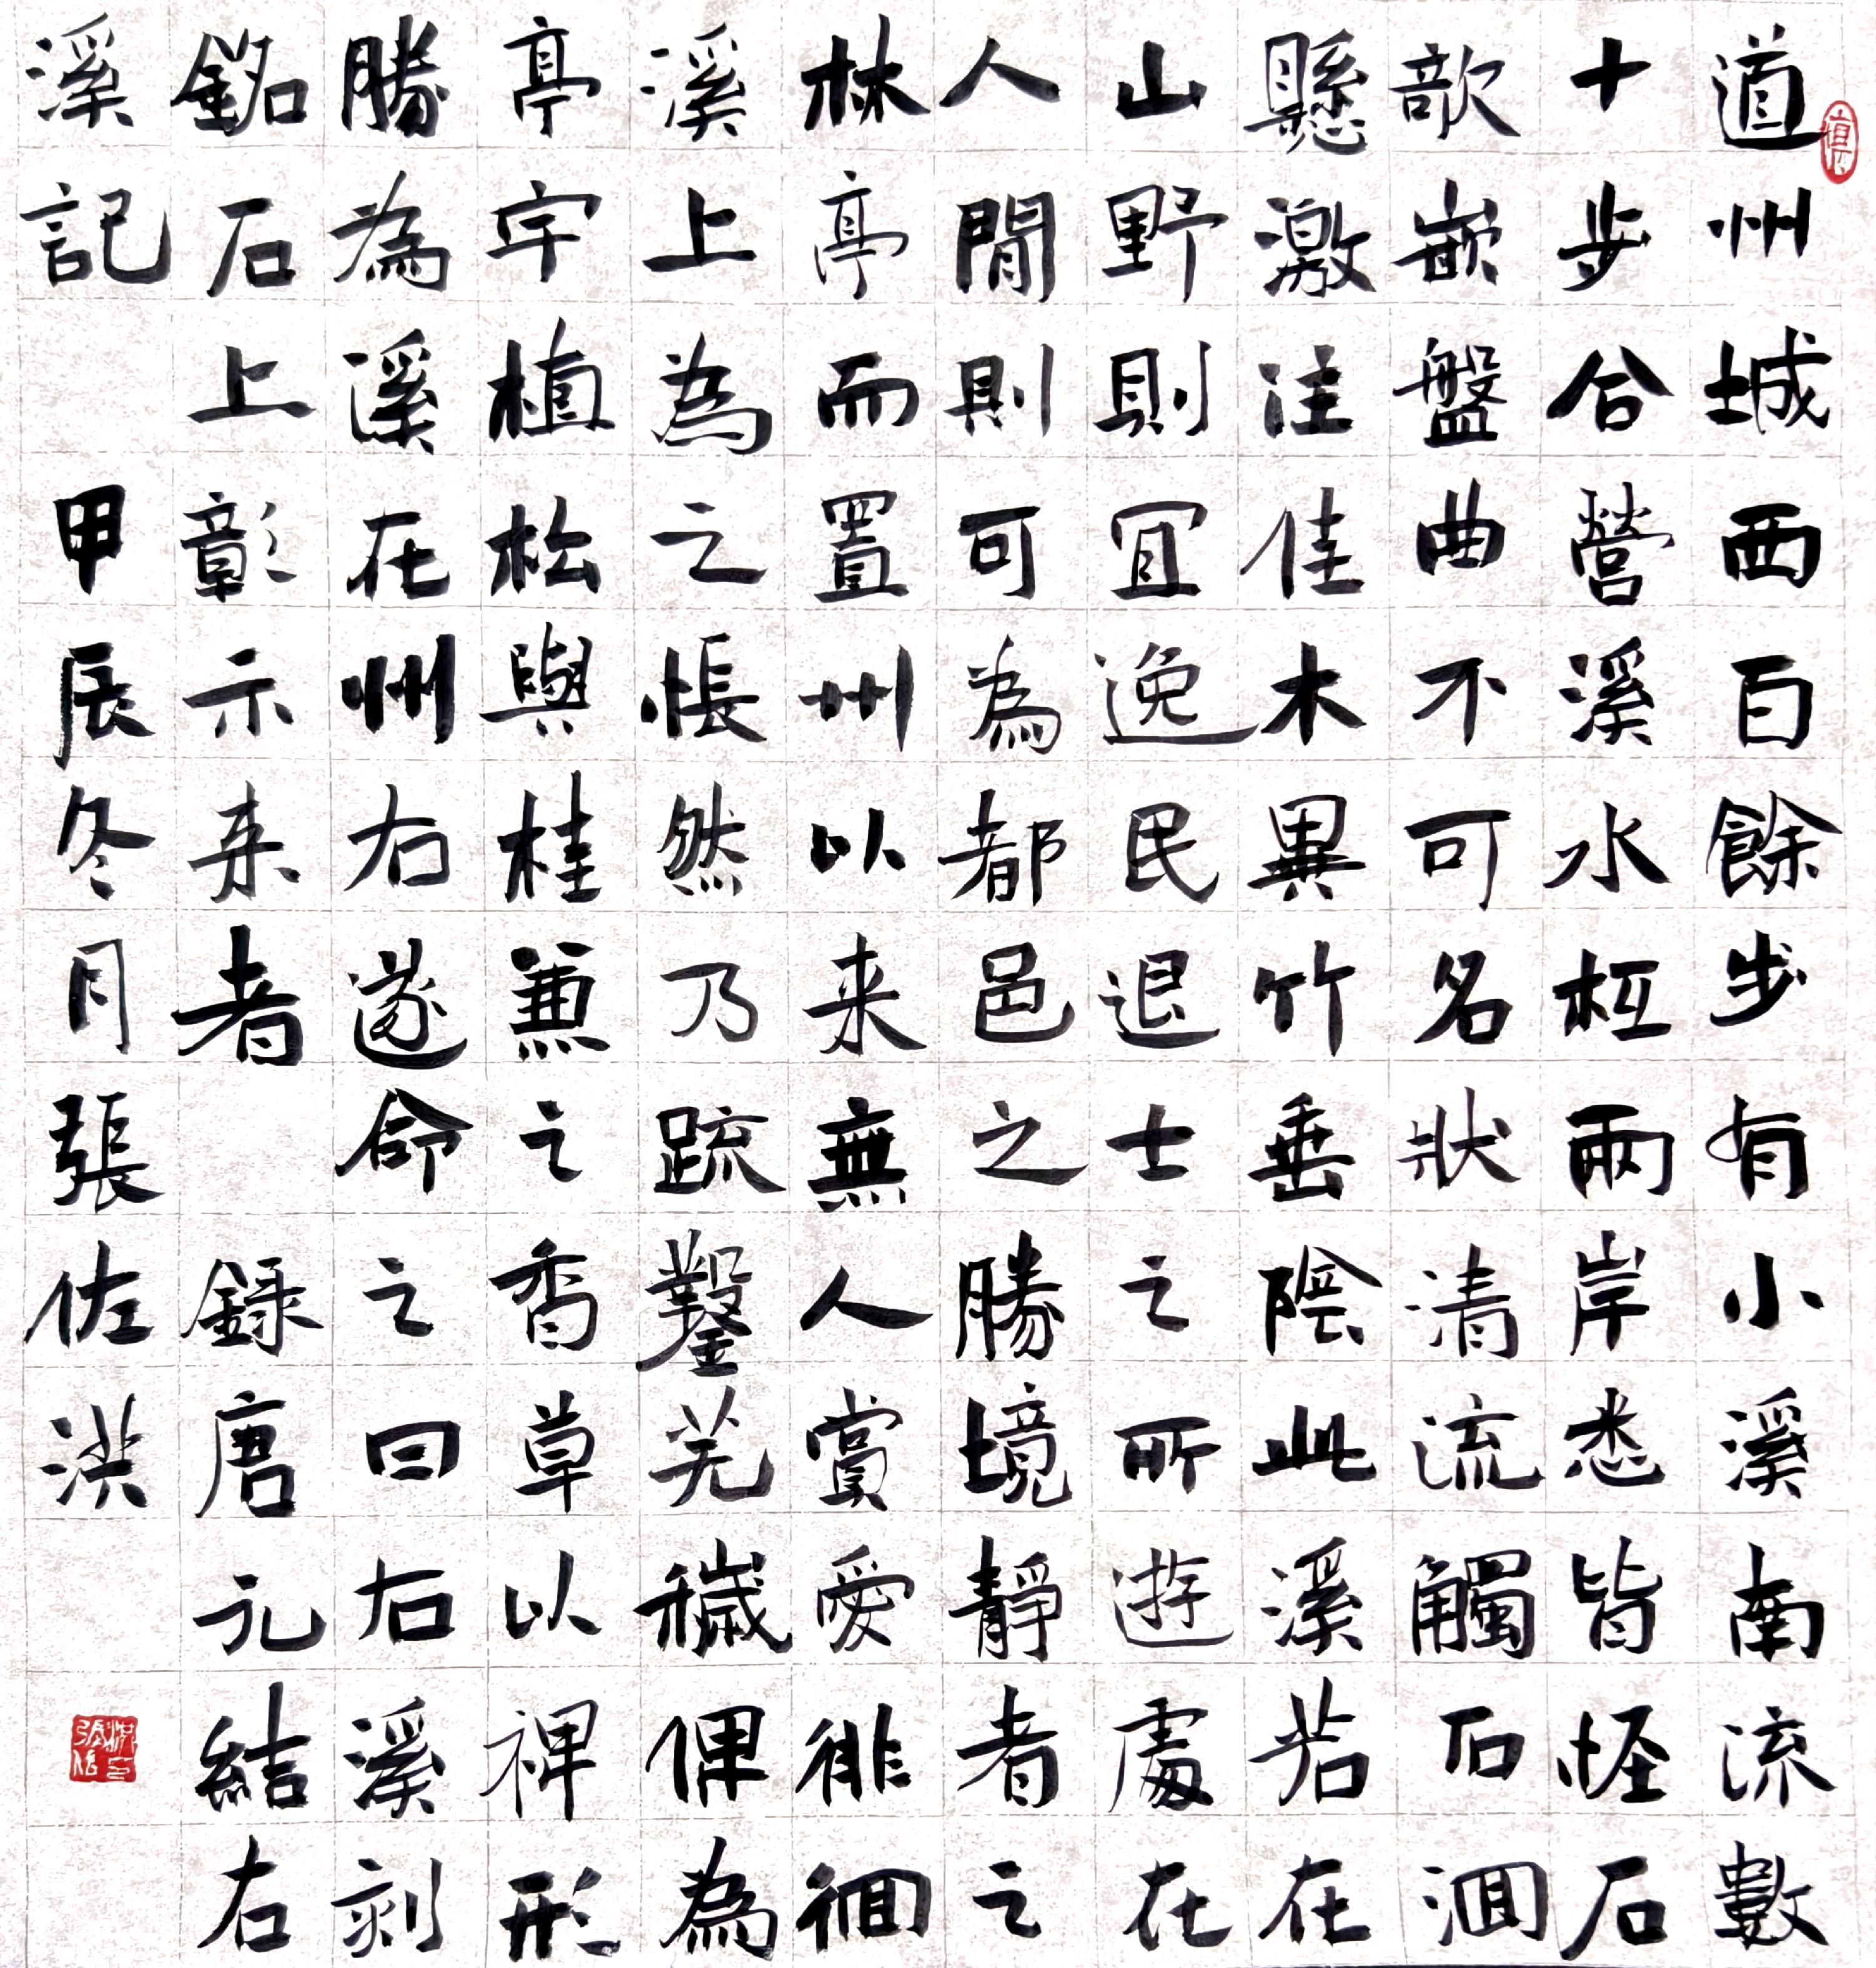 道州城西百餘步有小溪南流數
十步合營溪水柢兩岸悉皆怪石
欹嵌盤曲不可名狀清流觸石洄
懸激注佳木異竹垂陰此溪若在
山野則宜逸民退士之所遊處在
人間則可為都邑之勝境靜者之
林亭而置州以来無人賞愛徘徊
溪上為之悵然乃疏鑿芜穢俾為
亭宇植松與桂兼之香草以裨形
勝為溪在州右遂命之曰右溪刻
銘石上彰示来者 錄唐元結右
溪記 甲辰冬月張佐洪